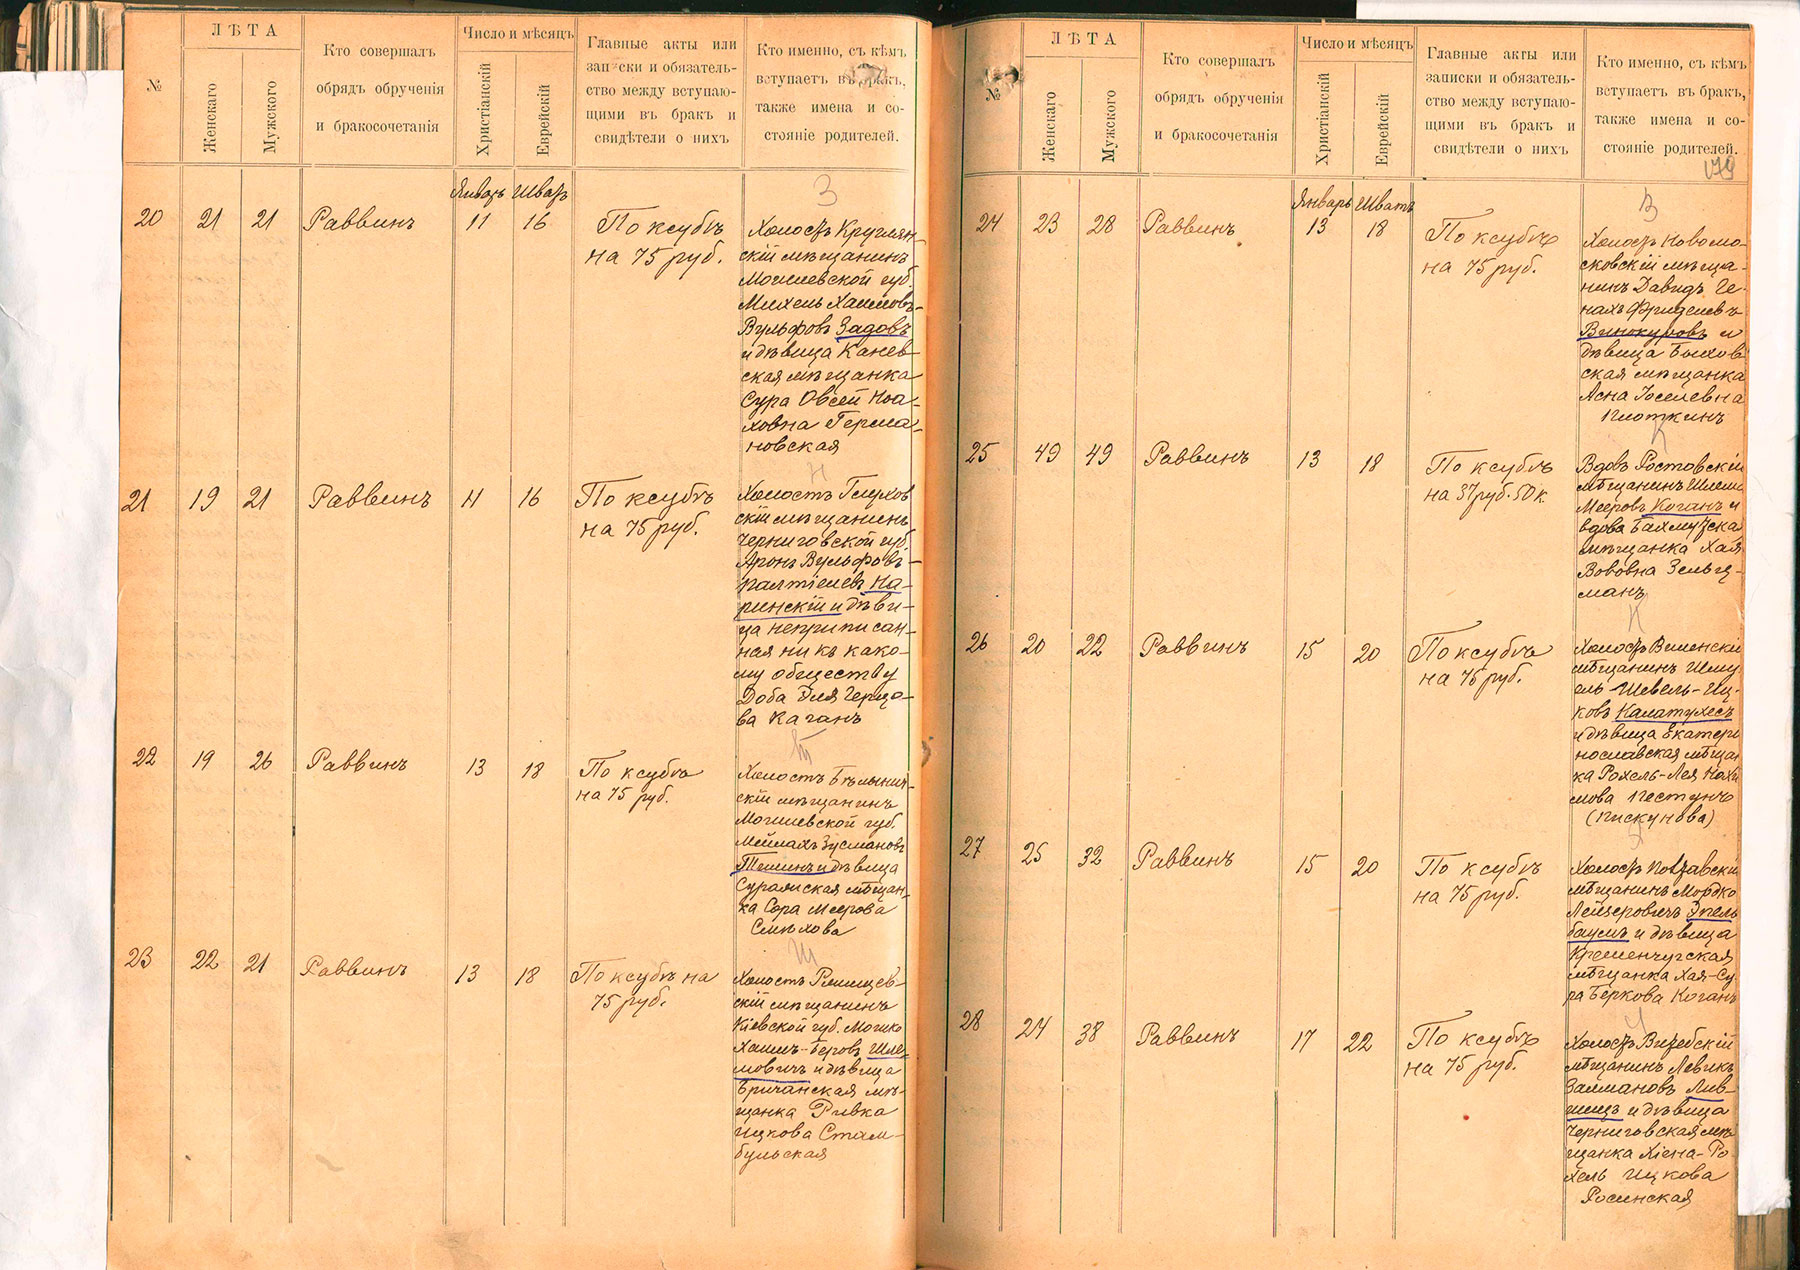 №
ЛѢТА
Женскаго
Мужского
Кто совершалъ
обрядъ обрученія
и бракосочетанія
Число и мѣсяцъ
Христіанскій
Еврейскій
Главные акты или
записки и обязатель-
ство между вступаю-
щими въ бракъ и
свидѣтели о нихъ
Кто именно, съ кѣмъ
вступаетъ въ бракъ,
также имена и со-
стояніе родителей.
Январь Шватъ
З
20 21 21 Раввинъ 11 16
По ксубѣ
на 75 руб.
Холостъ Круглян-
скій мѣщанинъ
Могилевской губ.
Михель Хаимовъ-
Вульфовъ Задовъ
и дѣвица Канев-
ская мѣщанка
Сура Овсей Ноа-
ховна Герма-
новская
Н
21 19 21 Раввинъ 11 16
По ксубѣ
на 75 руб.
Холостъ Глухов
скій мѣщанинъ
Черниговской губ.
Аронъ Вульфовъ-
Палтіелевъ На-
ринскій и дѣви-
ца неприписан-
ная ни къ како-
му обществу
Доба Гиля Герцо-
ва Каганъ
Т
22 19 26 Раввинъ 13 18
По ксубѣ
на 75 руб.
Холостъ Бѣлынич-
скій мѣщанинъ
Могилевской губ.
Мейлахъ Зусмановъ
Темкинъ и дѣвица
Суражская мѣщан-
ка Сора Меерова
Смѣхова
Ш
23 22 21 Раввинъ 13 18
По ксубѣ на
75 руб.
Холостъ Ржищев-
скій мѣщанинъ
Кіевской губ. Мошко
Хаимъ-Беровъ Шле-
мовичъ и дѣвица
Бричанская мѣ-
щанка Ривка
Ицкова Стам-
бульская
№
ЛѢТА
Женскаго
Мужского
Кто совершалъ
обрядъ обрученія
и бракосочетанія
Число и мѣсяцъ
Христіанскій
Еврейскій
Главные акты или
записки и обязатель-
ство между вступаю-
щими въ бракъ и
свидѣтели о нихъ
Кто именно, съ кѣмъ
вступаетъ въ бракъ,
также имена и со-
стояніе родителей.
179
Январь Шватъ
В
24 23 28 Раввинъ 13 18
По ксубѣ
на 75 руб.
Холостъ Новомо-
сковскій мѣща-
нинъ Давидъ Ге-
нахъ Фишелевъ
Винокуровъ и
дѣвица Быхов-
ская мѣщанка
Асна Іоселевна
Плоткинъ
К
25 49 49 Раввинъ 13 18
По ксубѣ
на 37 руб. 50 к.
Вдовъ Ростовскій
мѣщанинъ Шлема
Мееровъ Коганъ и
вдова Бахмутская
мѣщанка Хая
Вововна Зельц-
манъ
К
26 20 22 Раввинъ 15 20
По ксубѣ
на 75 руб.
Холостъ Виленскій
мѣщанинъ Шму-
ель Шевель-Иц-
ковъ Калатухесъ
и дѣвица Екатери
нославская мѣщан
ка Рохель-Лея Нахи
мова Пестунъ
(Пискунова)
Э
27 25 32 Раввинъ 15 20
По ксубѣ
на 75 руб.
Холостъ Полтавскій
мѣщанинъ Мордко
Лейзеровичъ Эпель
баумъ и дѣвица
Кременчугская
мѣщанка Хая-Су
ра Беркова Коганъ
28 24 38 Раввинъ 17 22
По ксубѣ
на 75 руб.
Холостъ Витебскій
мѣщанинъ Левикъ
Залмановъ Лив-
шицъ и дѣвица
Черниговская мѣ
щанка Хіена-Ро
хель Ицкова
Росинская